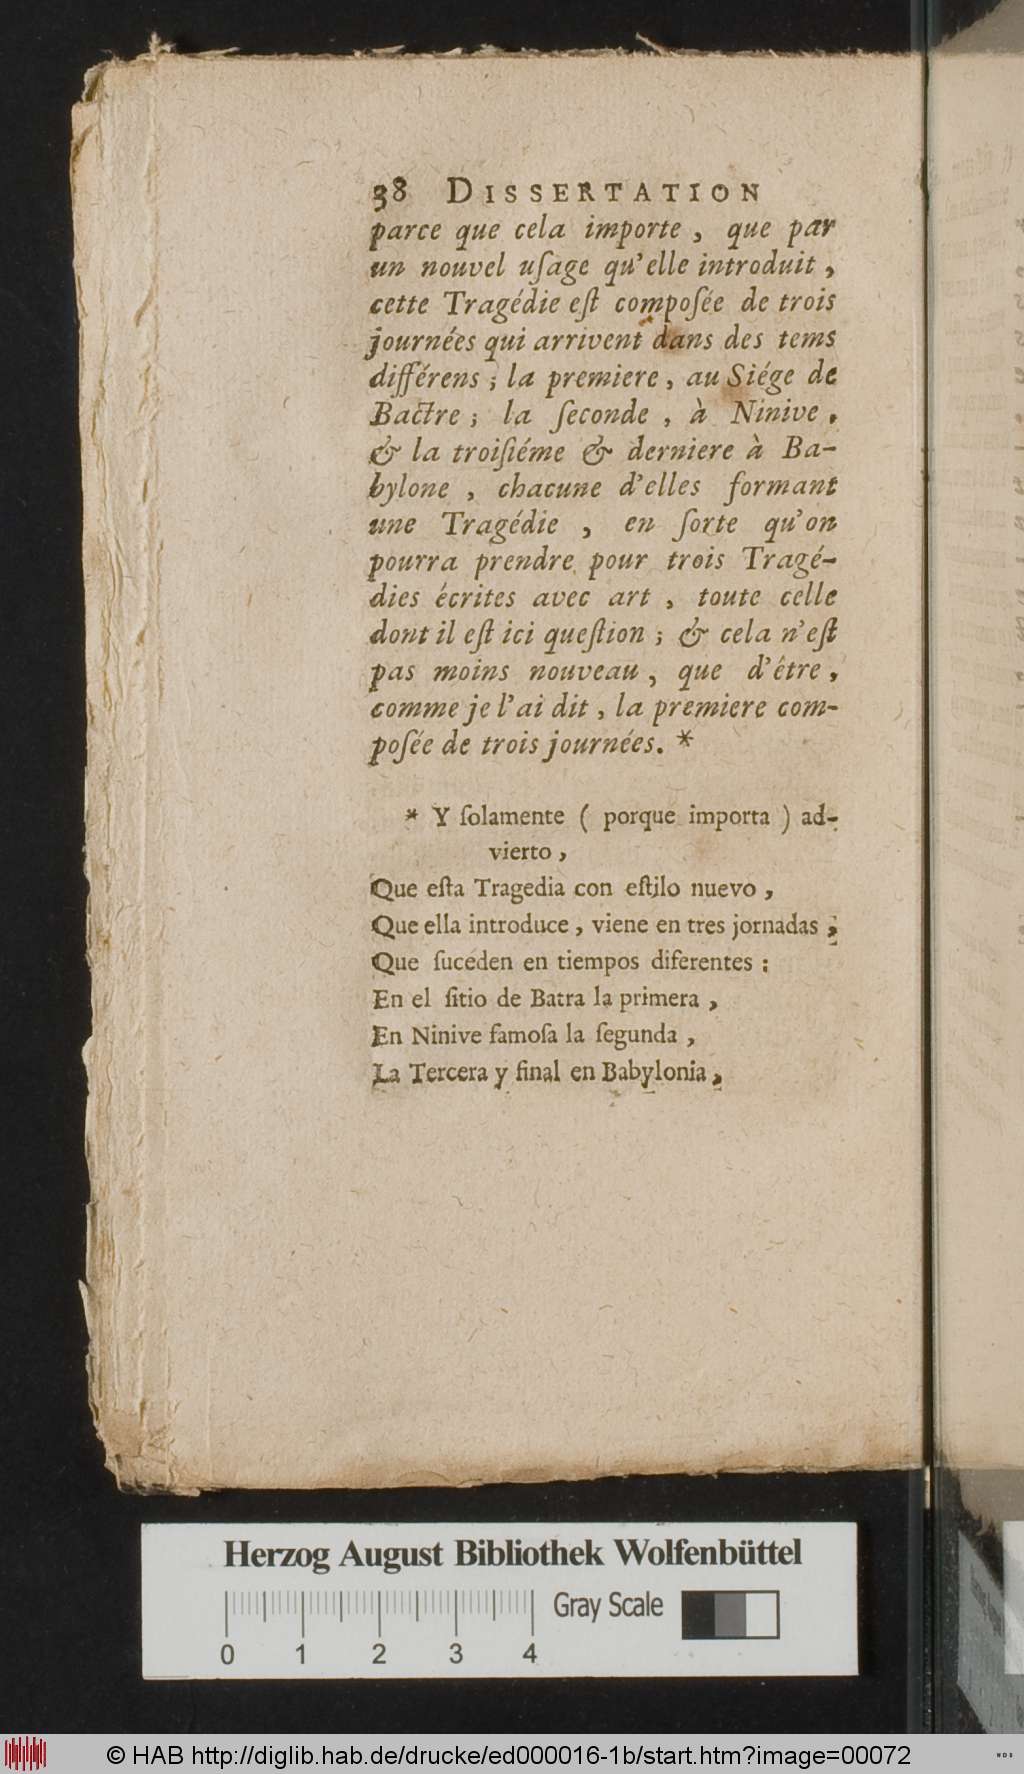 38 DISSERTATION
parce que cela importe, que par
un nouvel uſage qu'elle introduit,
cette Tragédie eſt compoſée de trois
journées qui arrivent dans des tems
différens; la premiere, au Siége de
Bactre; la ſeconde, à Ninive,
& la troiſiéme & derniere à Ba-
bylone, chacune d'elles formant
une Tragédie, en ſorte qu'on
pourra prendre pour trois Tragé-
dies écrites avec art, toute celle
dont il eſt ici queſtion; & cela n'eſt
pas moins nouveau, que d'être,
comme je l'ai dit, la premiere com-
poſée de trois journées. *
* Y ſolamente ( porque importa ) ad-
vierto,
Que eſta Tragedia con eſtilo nuevo,
Que ella introduce, viene en tres jornadas,
Que ſuceden en tiempos diferentes:
En el ſitio de Batra la primera,
En Ninive famoſa la ſegunda,
La Tercera y final en Babylonia,
Herzog August Bibliothek Wolfenbüttel
Gray Scale
0 1 2 3 4
© HAB http://diglib.hab.de/drucke/ed000016-1b/start.htm?image=00072